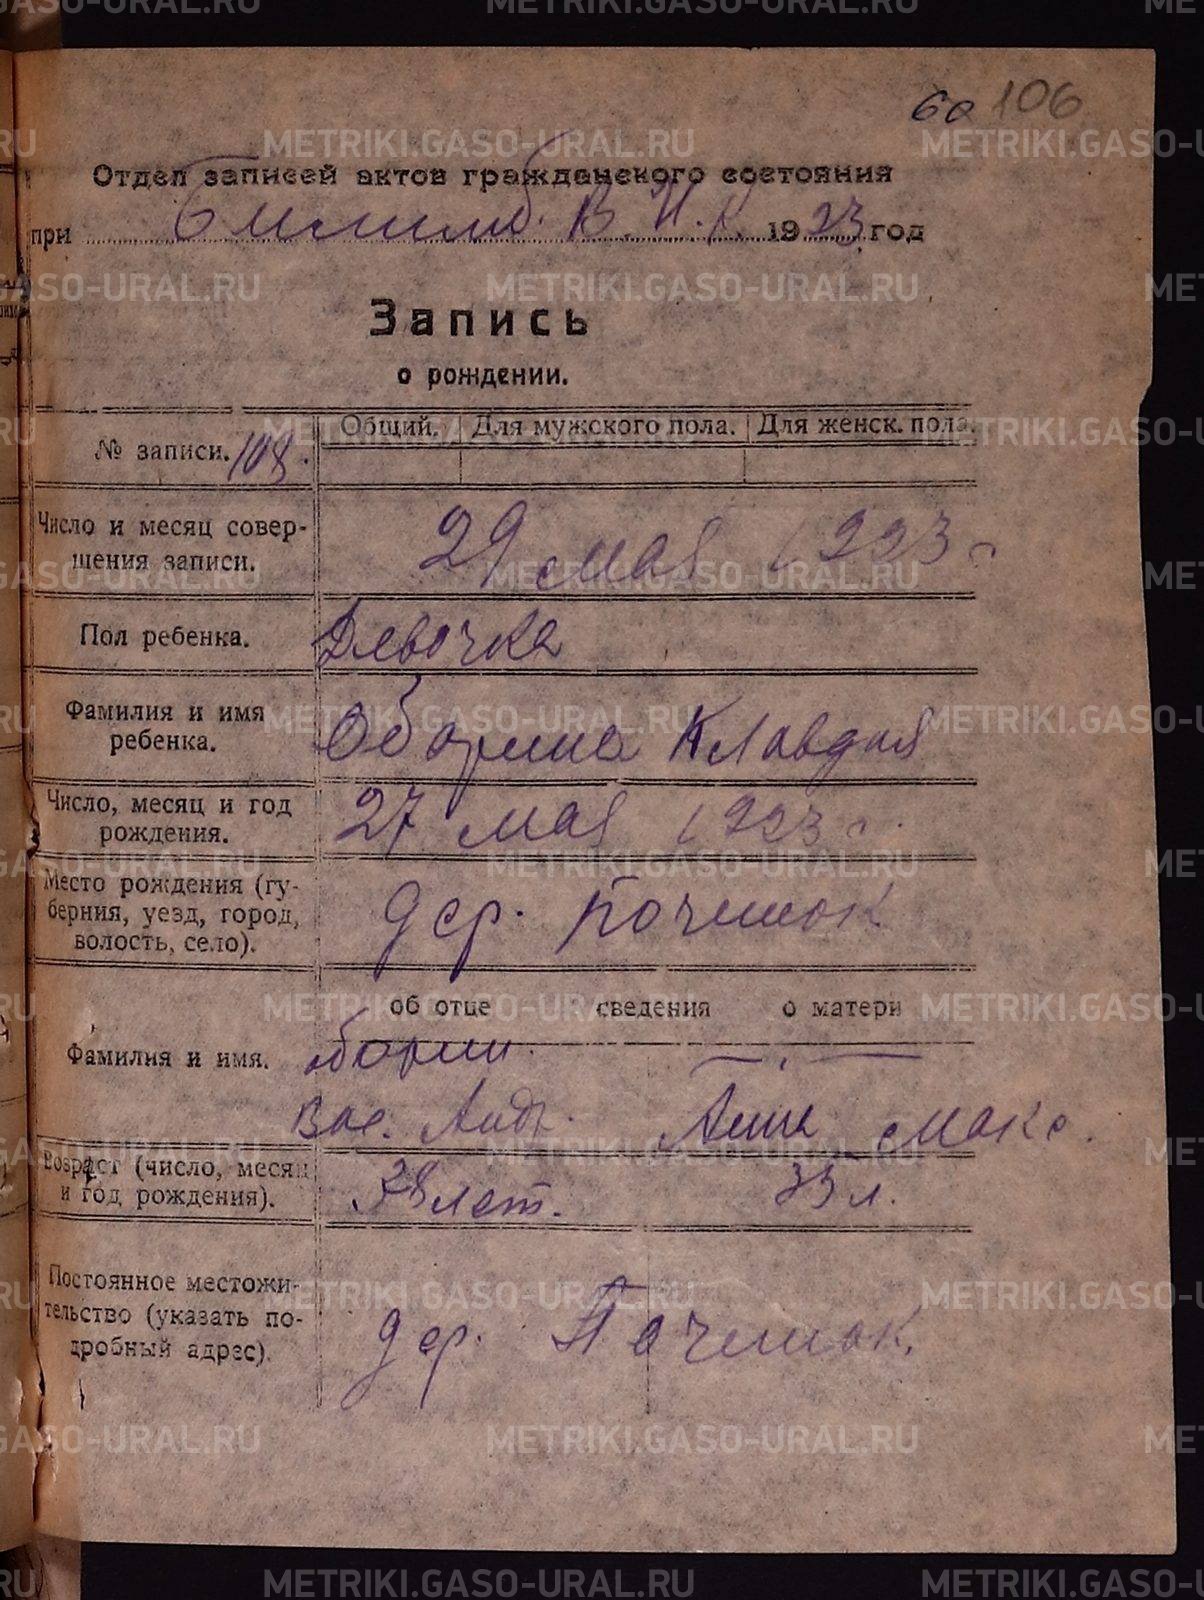 60 106
Отдел записей актов гражданского состояния
при Билимб. В.И.К. 1923 год
Запись
о рождении.
№ записи. 108.
Общий. Для мужского пола. Для женск. пола.
Число и месяц совер-
шения записи.
29 мая 1923 г
Пол ребенка.
Девочка
Фамилия и имя
ребенка.
Оборина Клавдия
Число, месяц и год
рождения.
27 мая 1923 г.
Место рождения (гу-
берния, уезд, город,
волость, село).
дер. Починок
об отце сведения о матери
Фамилия и имя.
Оборин.
Вас. Андр. Анна Макс.
Возраст (число, месяц
и год рождения).
38 лет. 33 л.
Постоянное местожи-
тельство (указать по-
дробный адрес).
дер. Починок.
METRIKI.GASO-URAL.RU